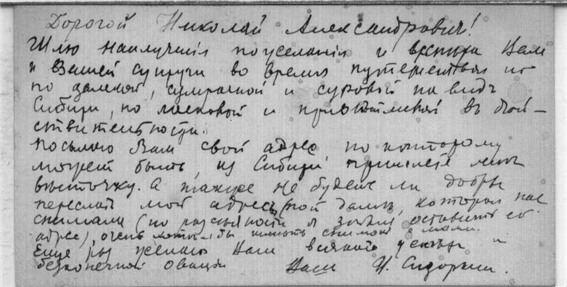 Дорогой Николай Александрович!
Шлю наилучшія пожеланія и Вам
и Вашей супруги во время путешествія по
далекой, сумрачной и суровой на видъ
Сибири, но ласковой и привѣтливой въ дѣй-
ствительности.
Посылаю Вам свой адрес, по которому
может быть, из Сибири, пришлете мнѣ
вѣсточку. А также не будете ли добры
переслать мой адрес той даме, которая нас
снимала (по разсѣяности я забыл оставить ей
адрес), очень хотѣл бы имѣть снимок с нами.
Еще раз желаю Вам всякаго успѣха и
безконечной оваціи Ваш И. Сидоркин.